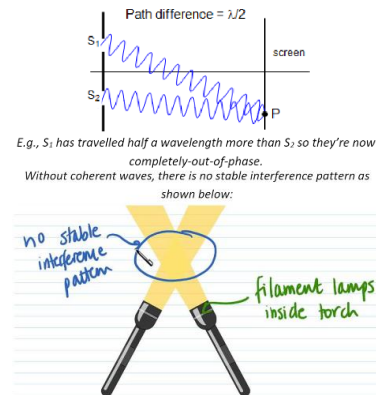 Path difference = λ/2
S₁
screen
S₂
P
E.g., S₁ has travelled half a wavelength more than S₂ so they're now
completely-out-of-phase.
Without coherent waves, there is no stable interference pattern as
shown below:
no stable
interference
pattern
filament lamps
inside torch